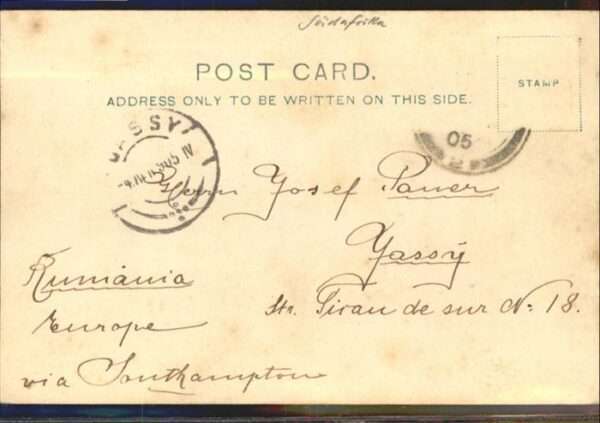 Südafrika
POST CARD.
STAMP
ADDRESS ONLY TO BE WRITTEN ON THIS SIDE.
JASSY
05
Herrn Josef Pauer
Yassy
Rumänia
Str. de sur No. 18.
Europe
via Southampton